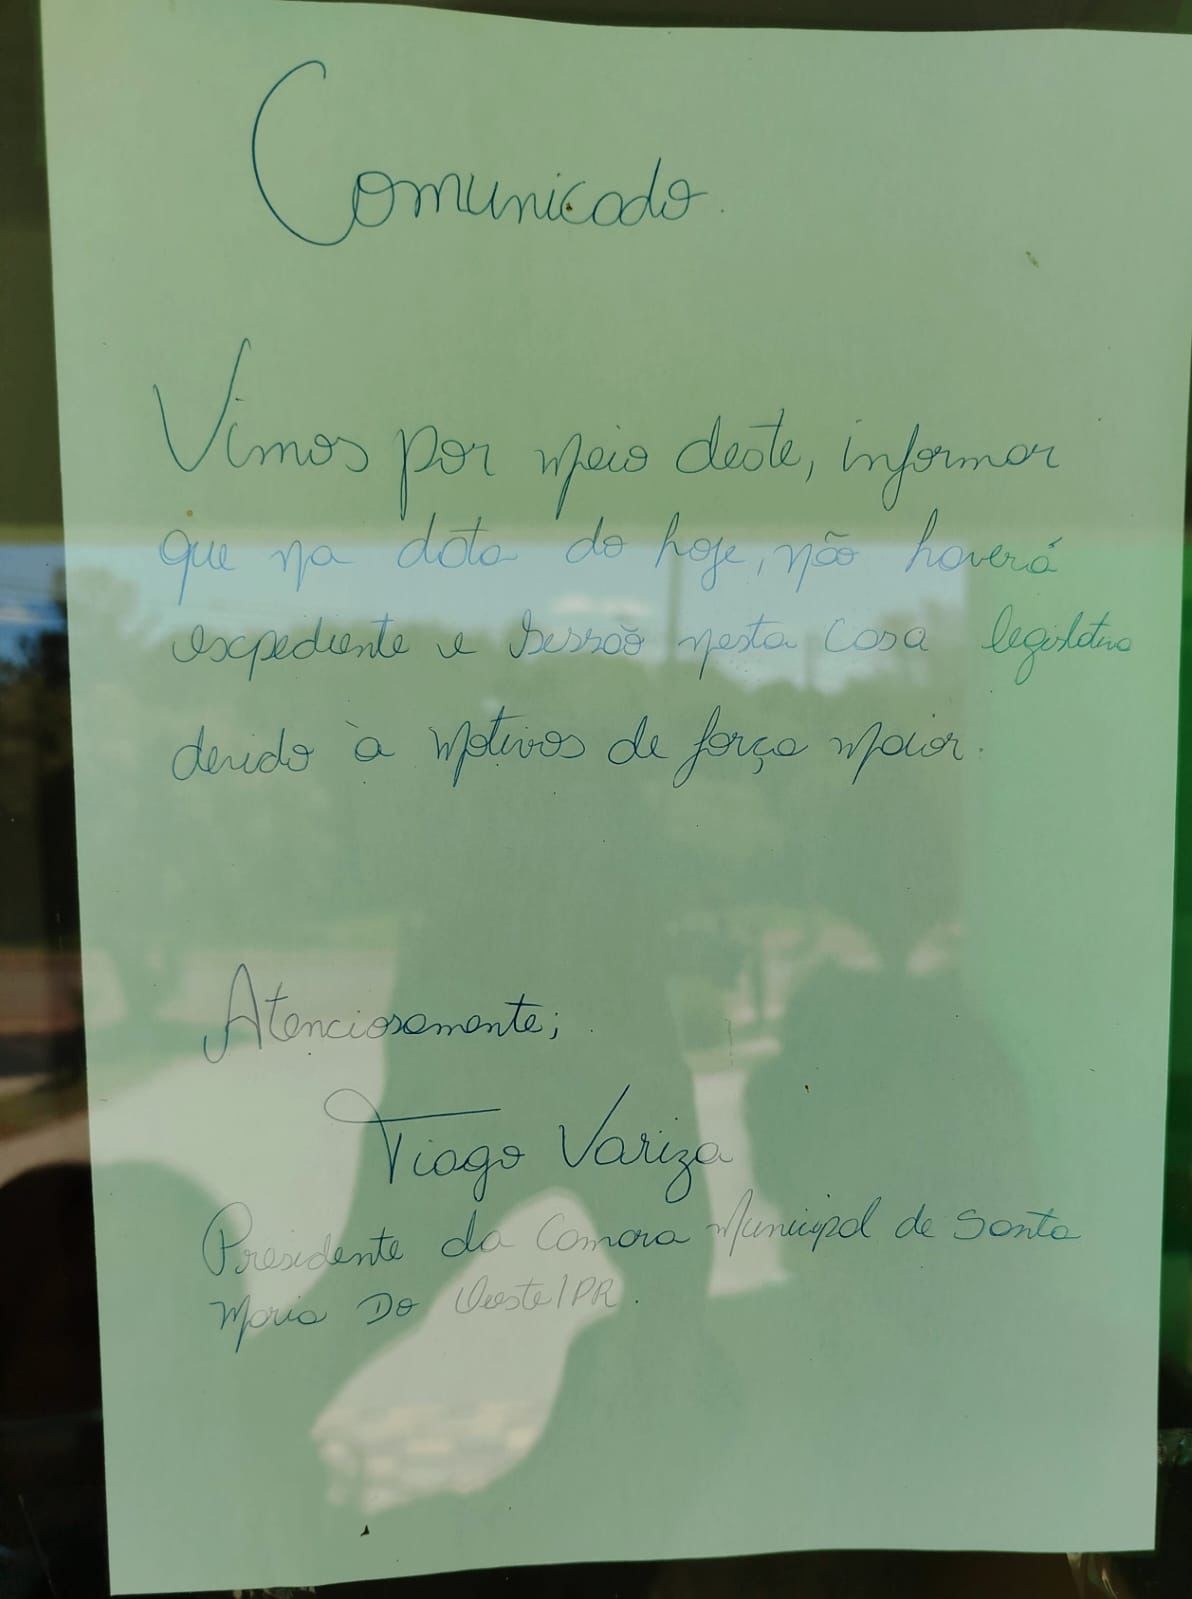 Comunicado.
Vimos por meio deste, informar
que na data do hoje, não haverá
expediente e sessão nesta casa legislativa
devido à motivos de força maior.
Atenciosamente;
Tiago Variza
Presidente da Camara Municipal de Santa
Maria Do Oeste/PR.